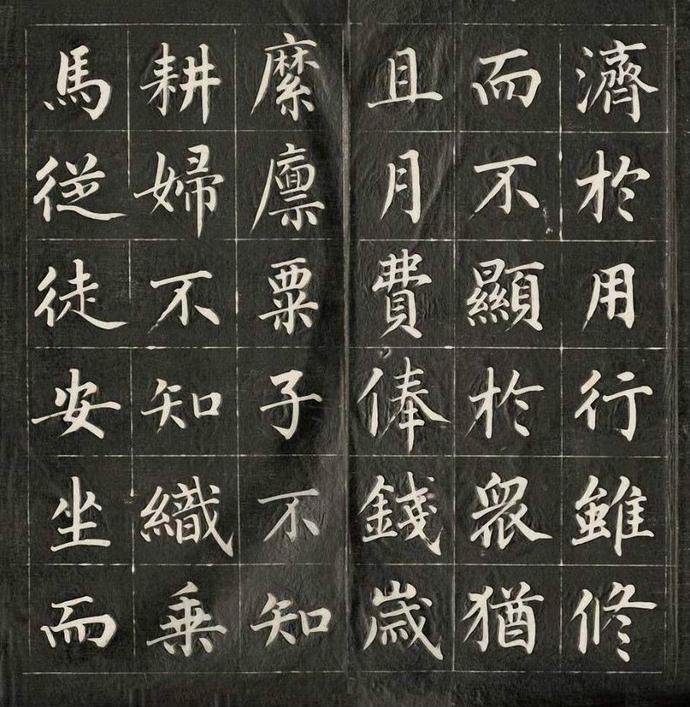 濟於用行雖修
而不顯於衆猶
且月費俸錢歲
縻廪粟子不知
耕婦不知織乗
馬從徒安坐而